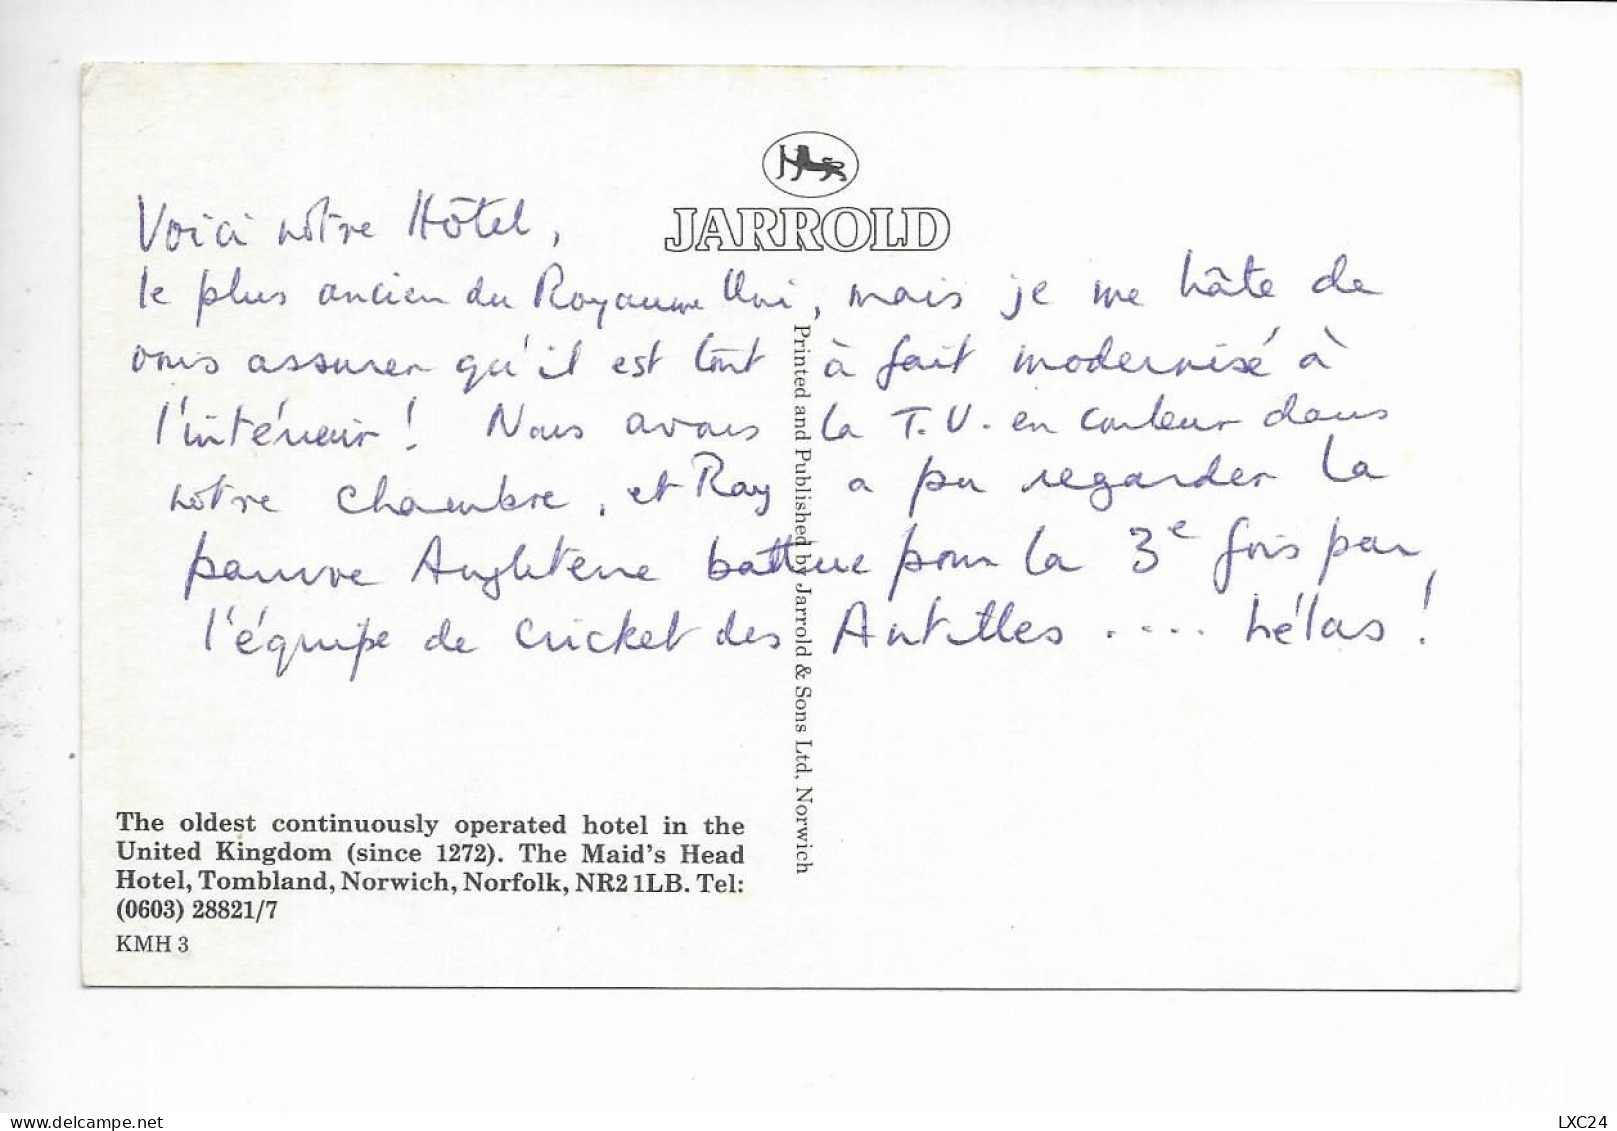 JARROLD
Voici notre Hôtel,
le plus ancien du Royaume Uni, mais je me hâte de
vous assurer qu'il est tout à fait modernisé à
l'intérieur! Nous avons la T.V. en couleur dans
notre chambre, et Ray a pu regarder la
pauvre Angleterre battue pour la 3e fois par
l'équipe de cricket des Antilles .... hélas!
Printed and Published by Jarrold & Sons Ltd, Norwich
The oldest continuously operated hotel in the
United Kingdom (since 1272). The Maid's Head
Hotel, Tombland, Norwich, Norfolk, NR2 1LB. Tel:
(0603) 28821/7
KMH 3
www.delcampe.net
LXC24